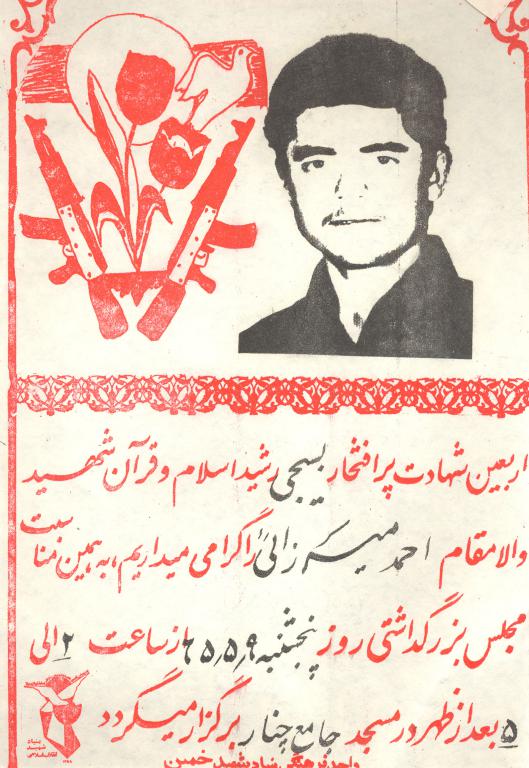 اربعین شهادت پرافتخار بسیجی رشید اسلام و قرآن شهید
والامقام احمد میرزائی را گرامی میداریم، به همین مناسبت
مجلس بزرگداشتی روز پنجشنبه ۶۵٫۵٫۹ از ساعت ۲ الی
۵ بعد از ظهر در مسجد جامع چنار برگزار میگردد
واحد فرهنگی بنیاد شهید خمین
بنیاد
شهید
انقلاب اسلامی